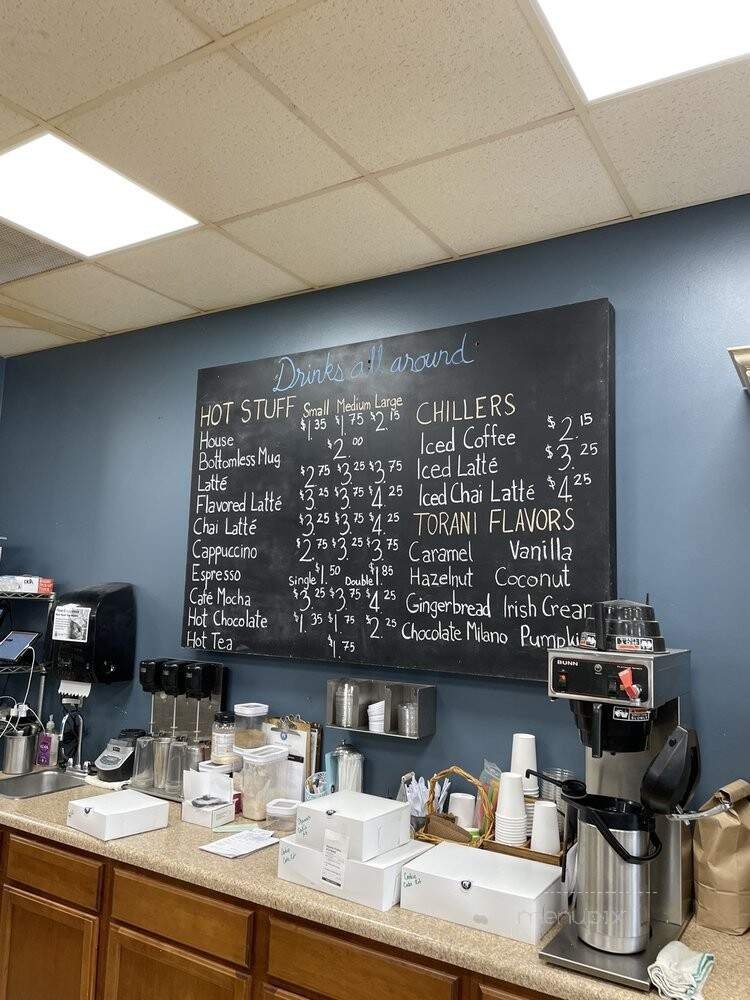 Drinks all around
HOT STUFF Small Medium Large
House $1.35 $1.75 $2.15
Bottomless Mug $2.00
Latté $2.75 $3.25 $3.75
Flavored Latté $3.25 $3.75 $4.25
Chai Latté $3.25 $3.75 $4.25
Cappuccino $2.75 $3.25 $3.75
Espresso Single $1.50 Double $1.85
Café Mocha $3.25 $3.75 $4.25
Hot Chocolate $1.35 $1.75 $2.25
Hot Tea $1.75
CHILLERS
Iced Coffee $2.15
Iced Latté $3.25
Iced Chai Latté $4.25
TORANI FLAVORS
Caramel Vanilla
Hazelnut Coconut
Gingerbread Irish Cream
Chocolate Milano Pumpki
BUNN
menupix